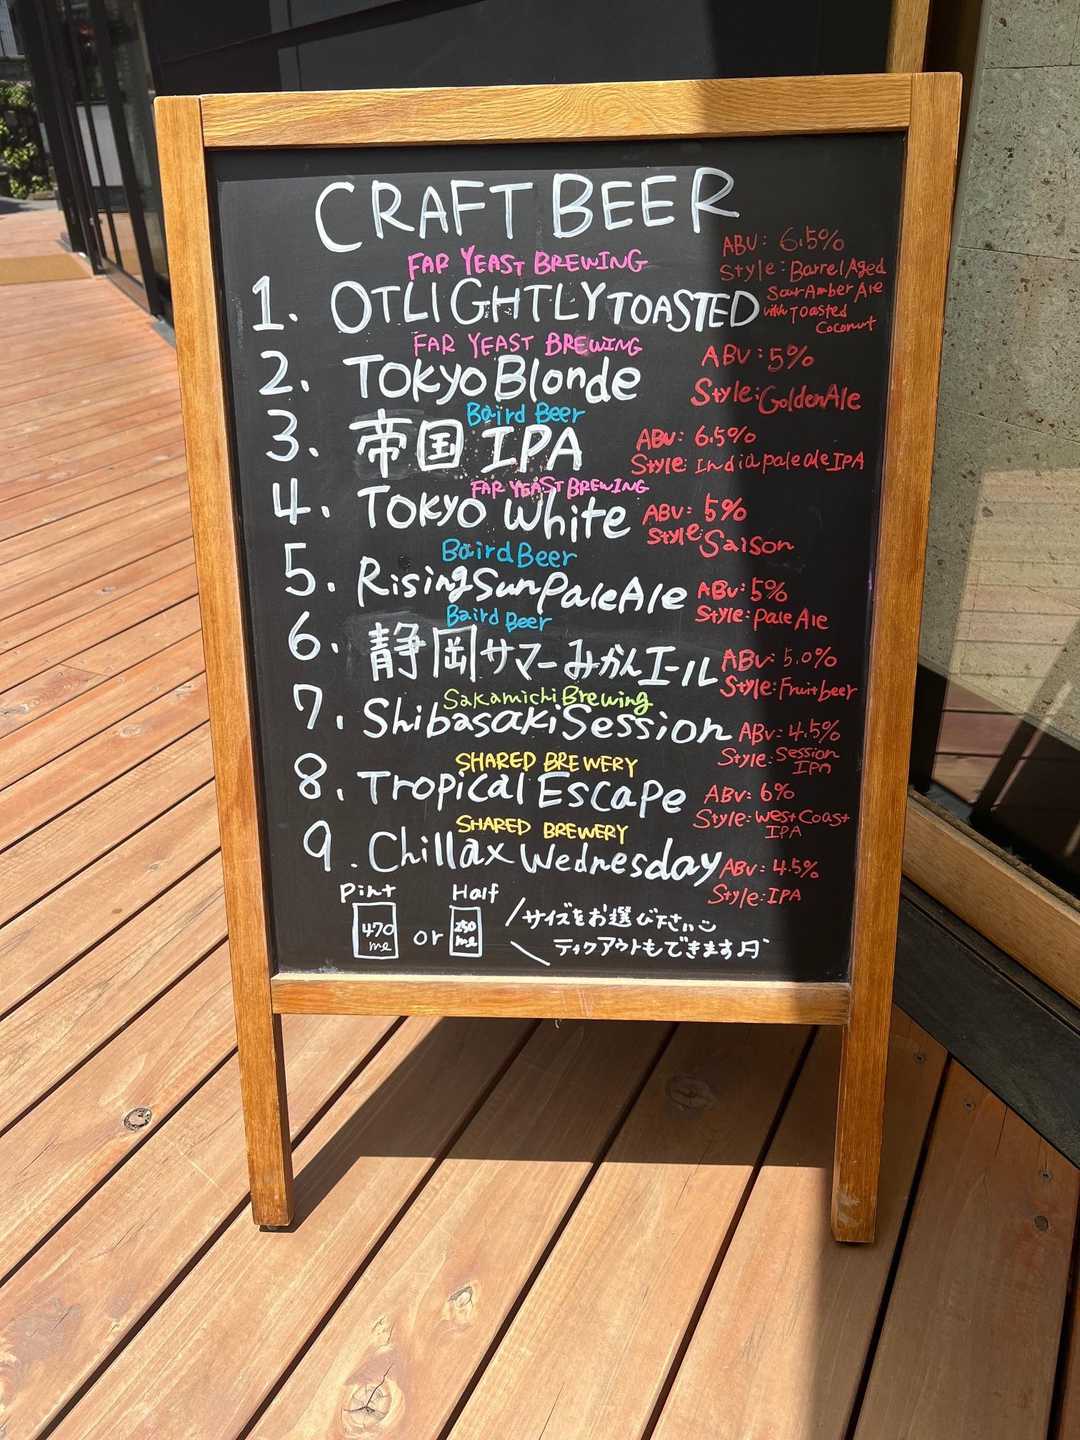 CRAFT BEER
FAR YEAST BREWING
1. OTLIGHTLY TOASTED
ABV: 6.5%
Style: Barrel Aged
Sour Amber Ale
with Toasted
Coconut
FAR YEAST BREWING
2. Tokyo Blonde
ABV: 5%
Style: Golden Ale
Baird Beer
3. 帝国 IPA
ABV: 6.5%
Style: India pale ale IPA
FAR YEAST BREWING
4. Tokyo White
ABV: 5%
Style: Saison
Baird Beer
5. Rising Sun Pale Ale
ABV: 5%
Style: Pale Ale
Baird Beer
6. 静岡サマーみかんエール
ABV: 5.0%
Style: Fruit beer
Sakamichi Brewing
7. Shibasaki Session
ABV: 4.5%
Style: Session
IPA
SHARED BREWERY
8. Tropical Escape
ABV: 6%
Style: West Coast
IPA
SHARED BREWERY
9. Chillax Wednesday
ABV: 4.5%
Style: IPA
Pint
470
ml
or
Half
250
ml
サイズをお選び下さい
テイクアウトもできます